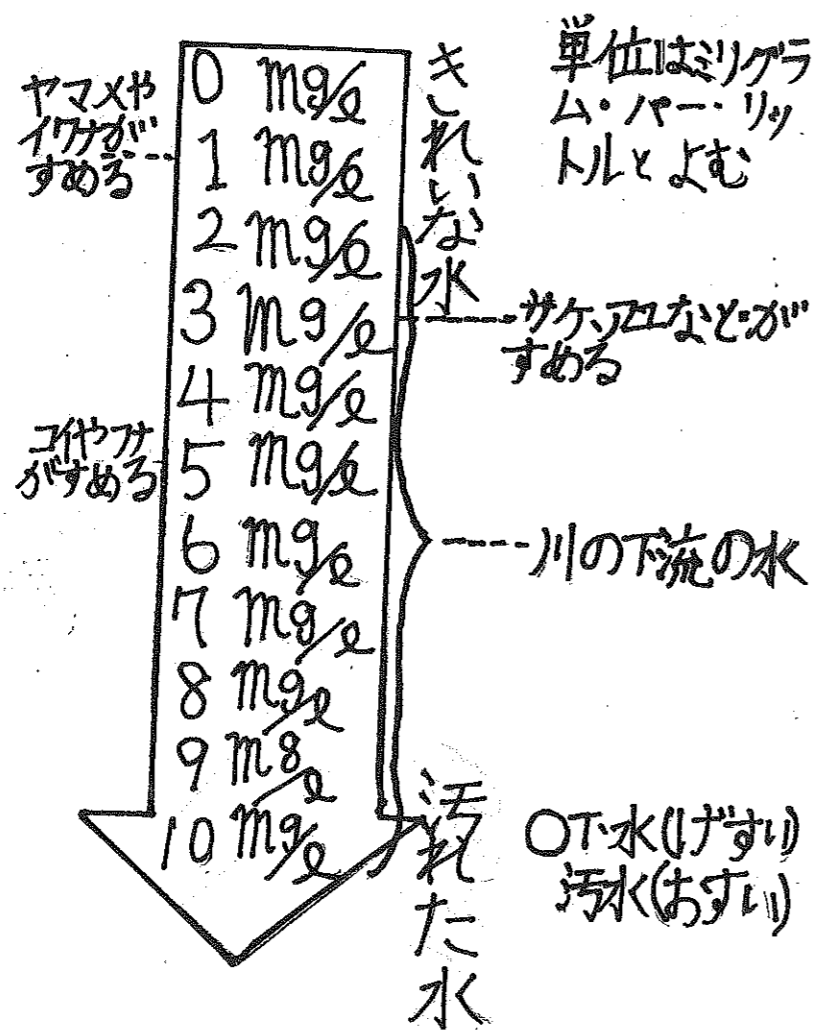 単位はミリグラ
ム・パー・リッ
トルとよむ
きれいな水
ヤマメや
イワナが
すめる
0 mg/ℓ
1 mg/ℓ
2 mg/ℓ
3 mg/ℓ
4 mg/ℓ
5 mg/ℓ
6 mg/ℓ
7 mg/ℓ
8 mg/ℓ
9 m8/ℓ
10 mg/ℓ
サケ、アユなどが
すめる
コイやフナ
がすめる
川の下流の水
汚れた水
〇下水(げすい)
汚水(おすい)